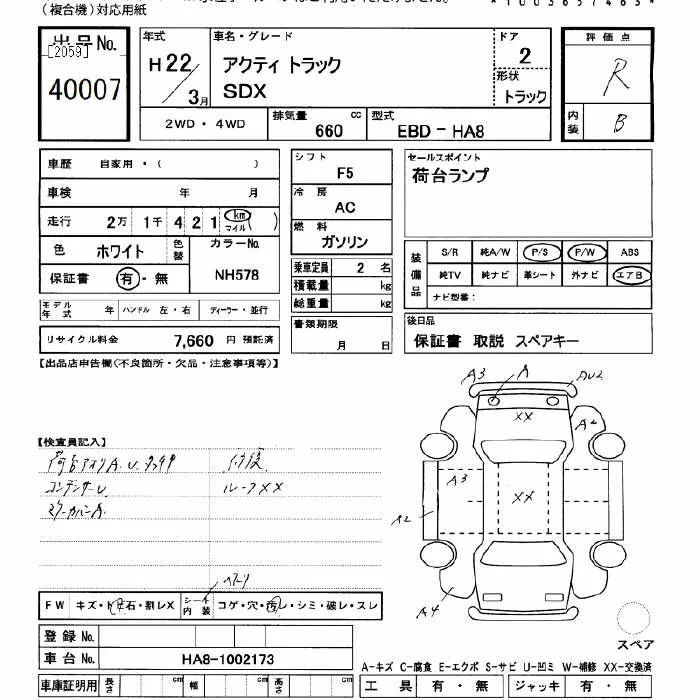 （複合機）対応用紙
*1003657463*
出品No.
[2059]
40007
年式
H22/3月
車名・グレード
アクティ トラック
SDX
ドア
2
形状
トラック
2WD・4WD
排気量 cc
660
型式
EBD-HA8
評価点
R
内装
B
車歴 自家用・( )
車検 年 月
走行 2万 1千 4 2 1 km マイル ( )
色 ホワイト 色替
カラーNo.
NH578
保証書 有・無
モデル年式 年 ハンドル 左・右 ディーラー・並行
リサイクル料金 7,660 円 預託済
シフト
F5
冷房
AC
燃料
ガソリン
乗車定員 2 名
積載量 kg
総重量 kg
書類期限
月 日
セールスポイント
荷台ランプ
装備品
S/R 純A/W P/S P/W ABS
純TV 純ナビ 革シート 外ナビ エアB
ナビ型番：
後日品
保証書 取説 スペアキー
【出品店申告欄(不良箇所・欠品・注意事項等)】
【検査員記入】
荷台アオリA.U. タッチ 付後
コンデンサーU ルーフXX
マフラーカバーA
FW キズ・トビ石・割レX
シート内装 コゲ・穴・汚レ・シミ・破レ・スレ
登録No.
車台No. HA8-1002173
車庫証明用 長さ cm 幅 cm 高さ cm
A3 A AU2
XX A2
A3 XX
A2
A4
スペア
A-キズ C-腐食 E-エクボ S-サビ U-凹ミ W-補修 XX-交換済
工具 有・無 ジャッキ 有・無